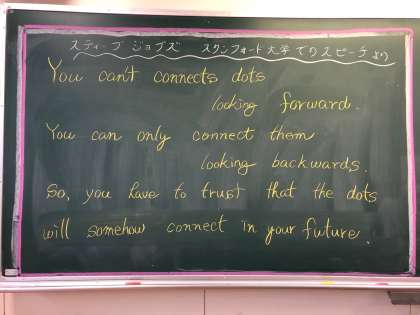 スティーブ ジョブズ スタンフォード大学でのスピーチより
You can't connects dots
looking forward.
You can only connect them
looking backwards.
So, you have to trust that the dots
will somehow connect in your future.